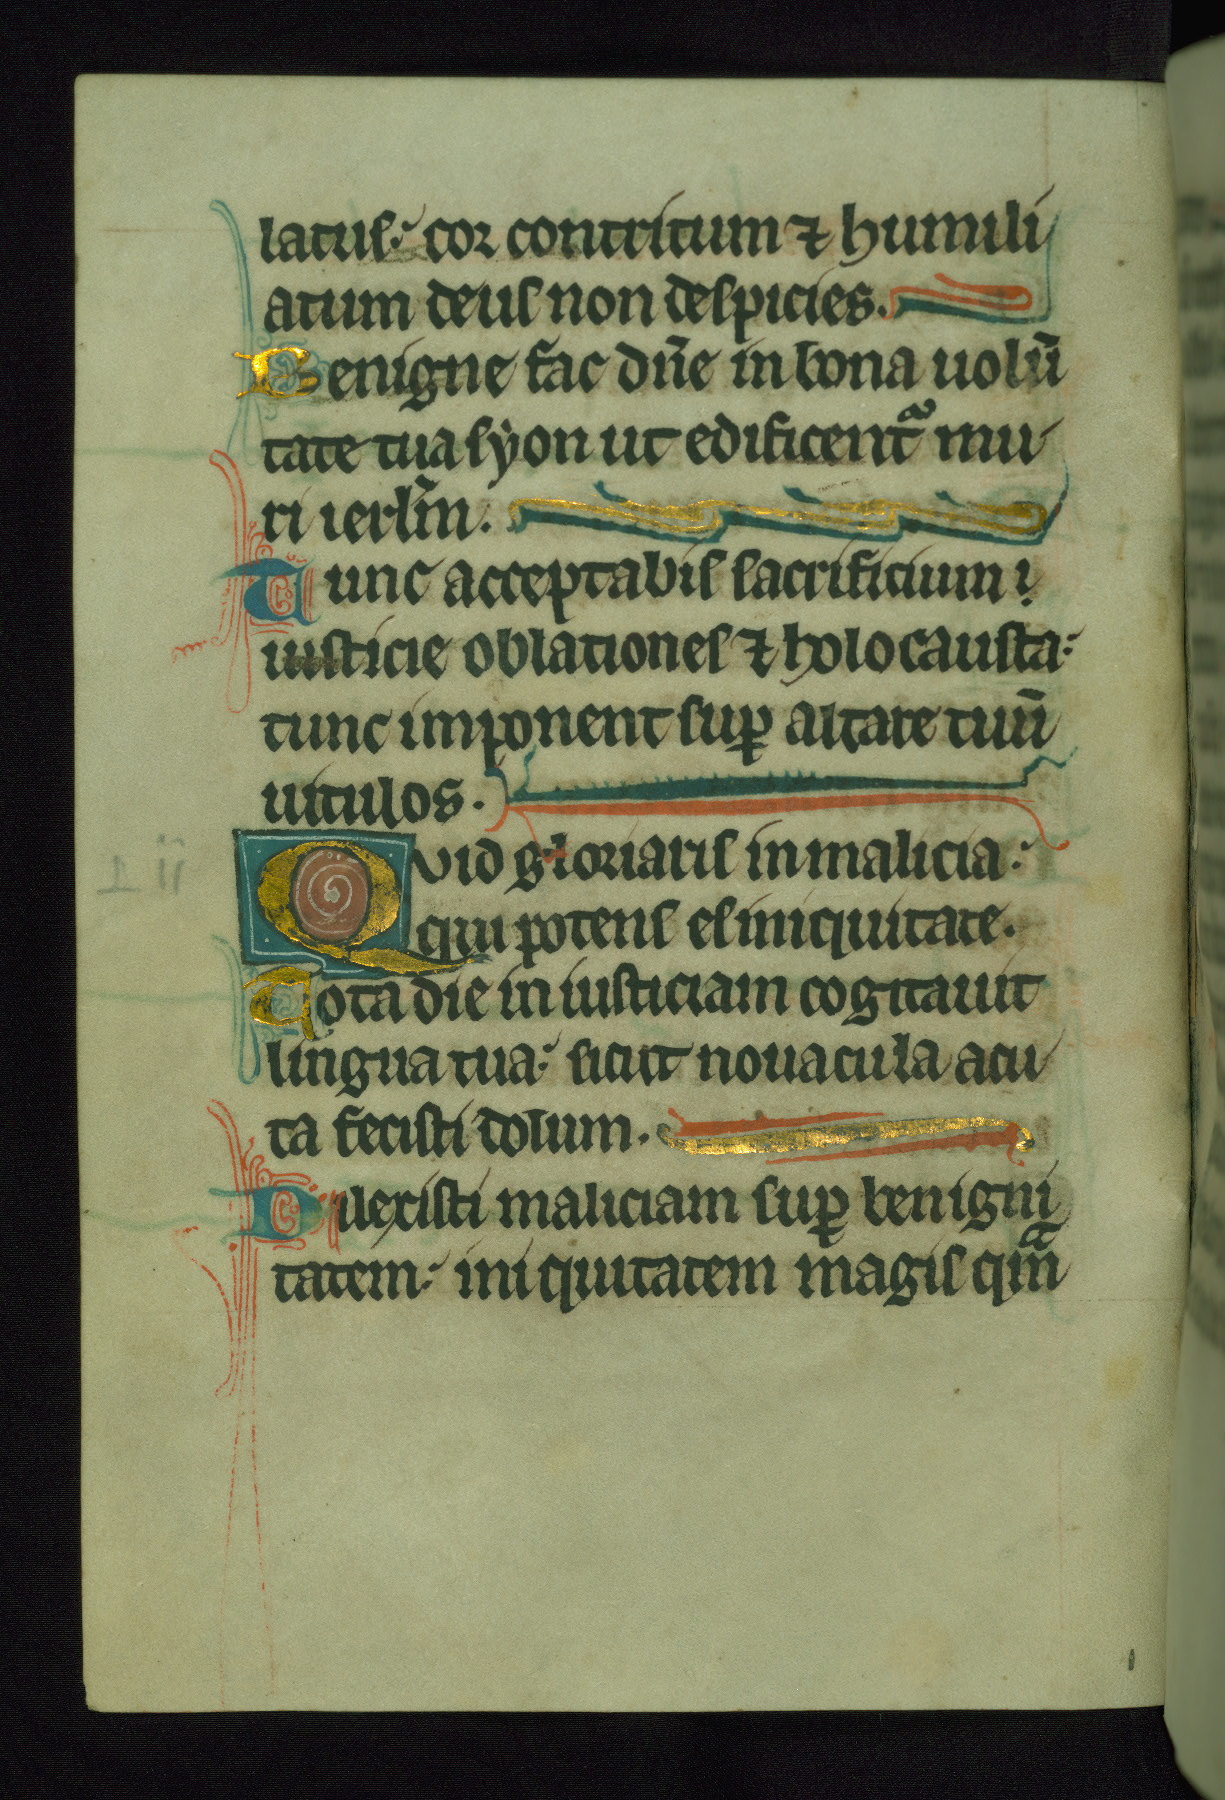 latus: cor contritum ⁊ humili
atum deus non despicies.
Benigne fac dn̄e in bona uolū
tate tua syon ut edificent᷑ mu
ri ierl̄m.
Tunc acceptabis sacrificium i
iusticie oblationes ⁊ holocausta:
tunc imponent suꝑ altare tuū
uitulos.
Quid gloriaris in malicia:
qui potens es iniquitate.
Tota die in iusticiam cogitauit
lingua tua: sicut nouacula acu
ta fecisti dolum.
Dilexisti maliciam suꝑ benigni
tatem: iniquitatem magis qᷓm